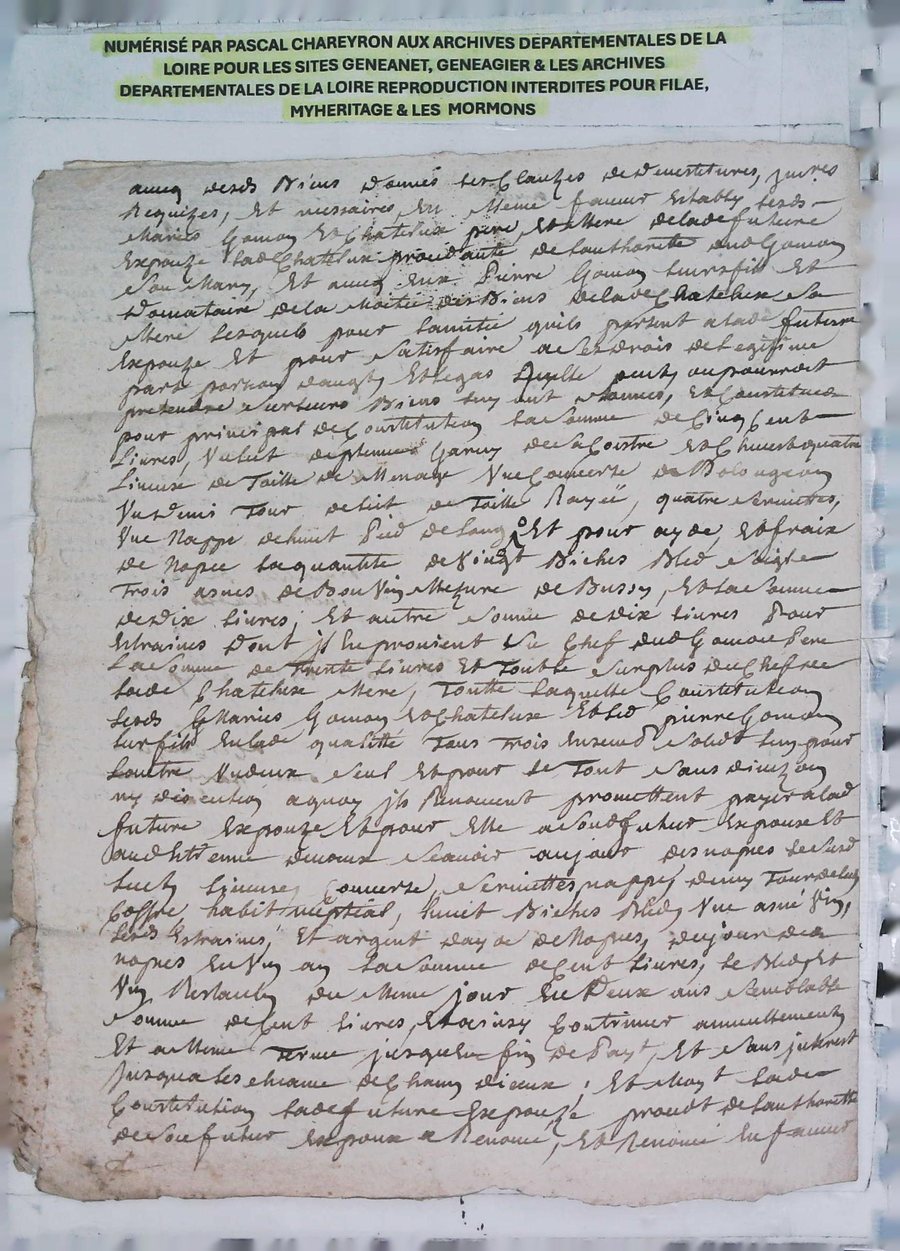 NUMÉRISÉ PAR PASCAL CHAREYRON AUX ARCHIVES DEPARTEMENTALES DE LA
LOIRE POUR LES SITES GENEANET, GENEAGIER & LES ARCHIVES
DEPARTEMENTALES DE LA LOIRE REPRODUCTION INTERDITES POUR FILAE,
MYHERITAGE & LES MORMONS
desds Biens donnés les Clauzes de devestitures,
Requizes, et nessaires, En Meme faveur Establys lesds
Mariés Gomon Et Chatelux pere Et Mere de lade future
Expouze lade Chatelux procedante de lauthorité dud Gomon
son Mary, Et avecq Eux Pierre Gomon leurs fils Et
Donnataire de la Moitié des Biens de lade Chatelux sa
Mere lesquels pour lamitié quils portent a lade future
Expouze Et pour satisfaire a ses drois de legitime
part portion Et legat quelle ou pourroit
pretendre sur leurs Biens luy ont donnés, Et Constitués
pour principal de Constitution la somme de Cinq Cent
Livres, Un lict de plumes Garny de sa Coitre Et Chevet quatre
Linceux de Toille de Menage Une Couverte de
Un demi Tour de lict de Toille Rayée, quatre serviettes,
Une Nappe de huict Pied de long Et pour ayde, Et fraix
de Nopce la quantité de Vingt Biches Bled seigle
Trois asnés de Bon Vin Mezure de Bussy, Et la somme
de dix livres, Et autre somme de dix livres Pour
Estraines Dont il En provient du Chef dud Gomon Pere
La somme de Trente livres Et Toutte surplus du Chef de
lade Chatelux Mere, Toutte laquelle Constitution
lesds Mariés Gomon Et Chatelux Et led pierre Gomon
leur fils En lade qualitté Tous Trois Ensemb solidt lun pour
lautre Un deux seul Et pour le Tout sans divizion
ny discution a quoy ils Renoncent promettent payer a lad
future Expouze Et pour Elle a sond futur Expoux Et
scavoir au jour des nopces le susd
linceuxs Couverte, serviettes nappe demy Tour de lict
Coffre, habit nuptial, huict Biches Bled, Une asné Vin,
lesds Estraines, Et argent dayde de Nopces, du jour des
nopces En Un an la somme de Cent livres, le Bled Et
Vin Restant, du Meme jour En Deux ans semblable
somme de Cent livres, Et ainsy Continuer annuellement
Et a Meme Terme jusqu'en fin de Payt, Et sans jnterest
jusqua les cheance de Chacun dieux ; Et Moyt lade
Constitution lade future Expouze procedt de lauthoritte
de son futur Expoux a Renoncé, Et Renonce En faveur